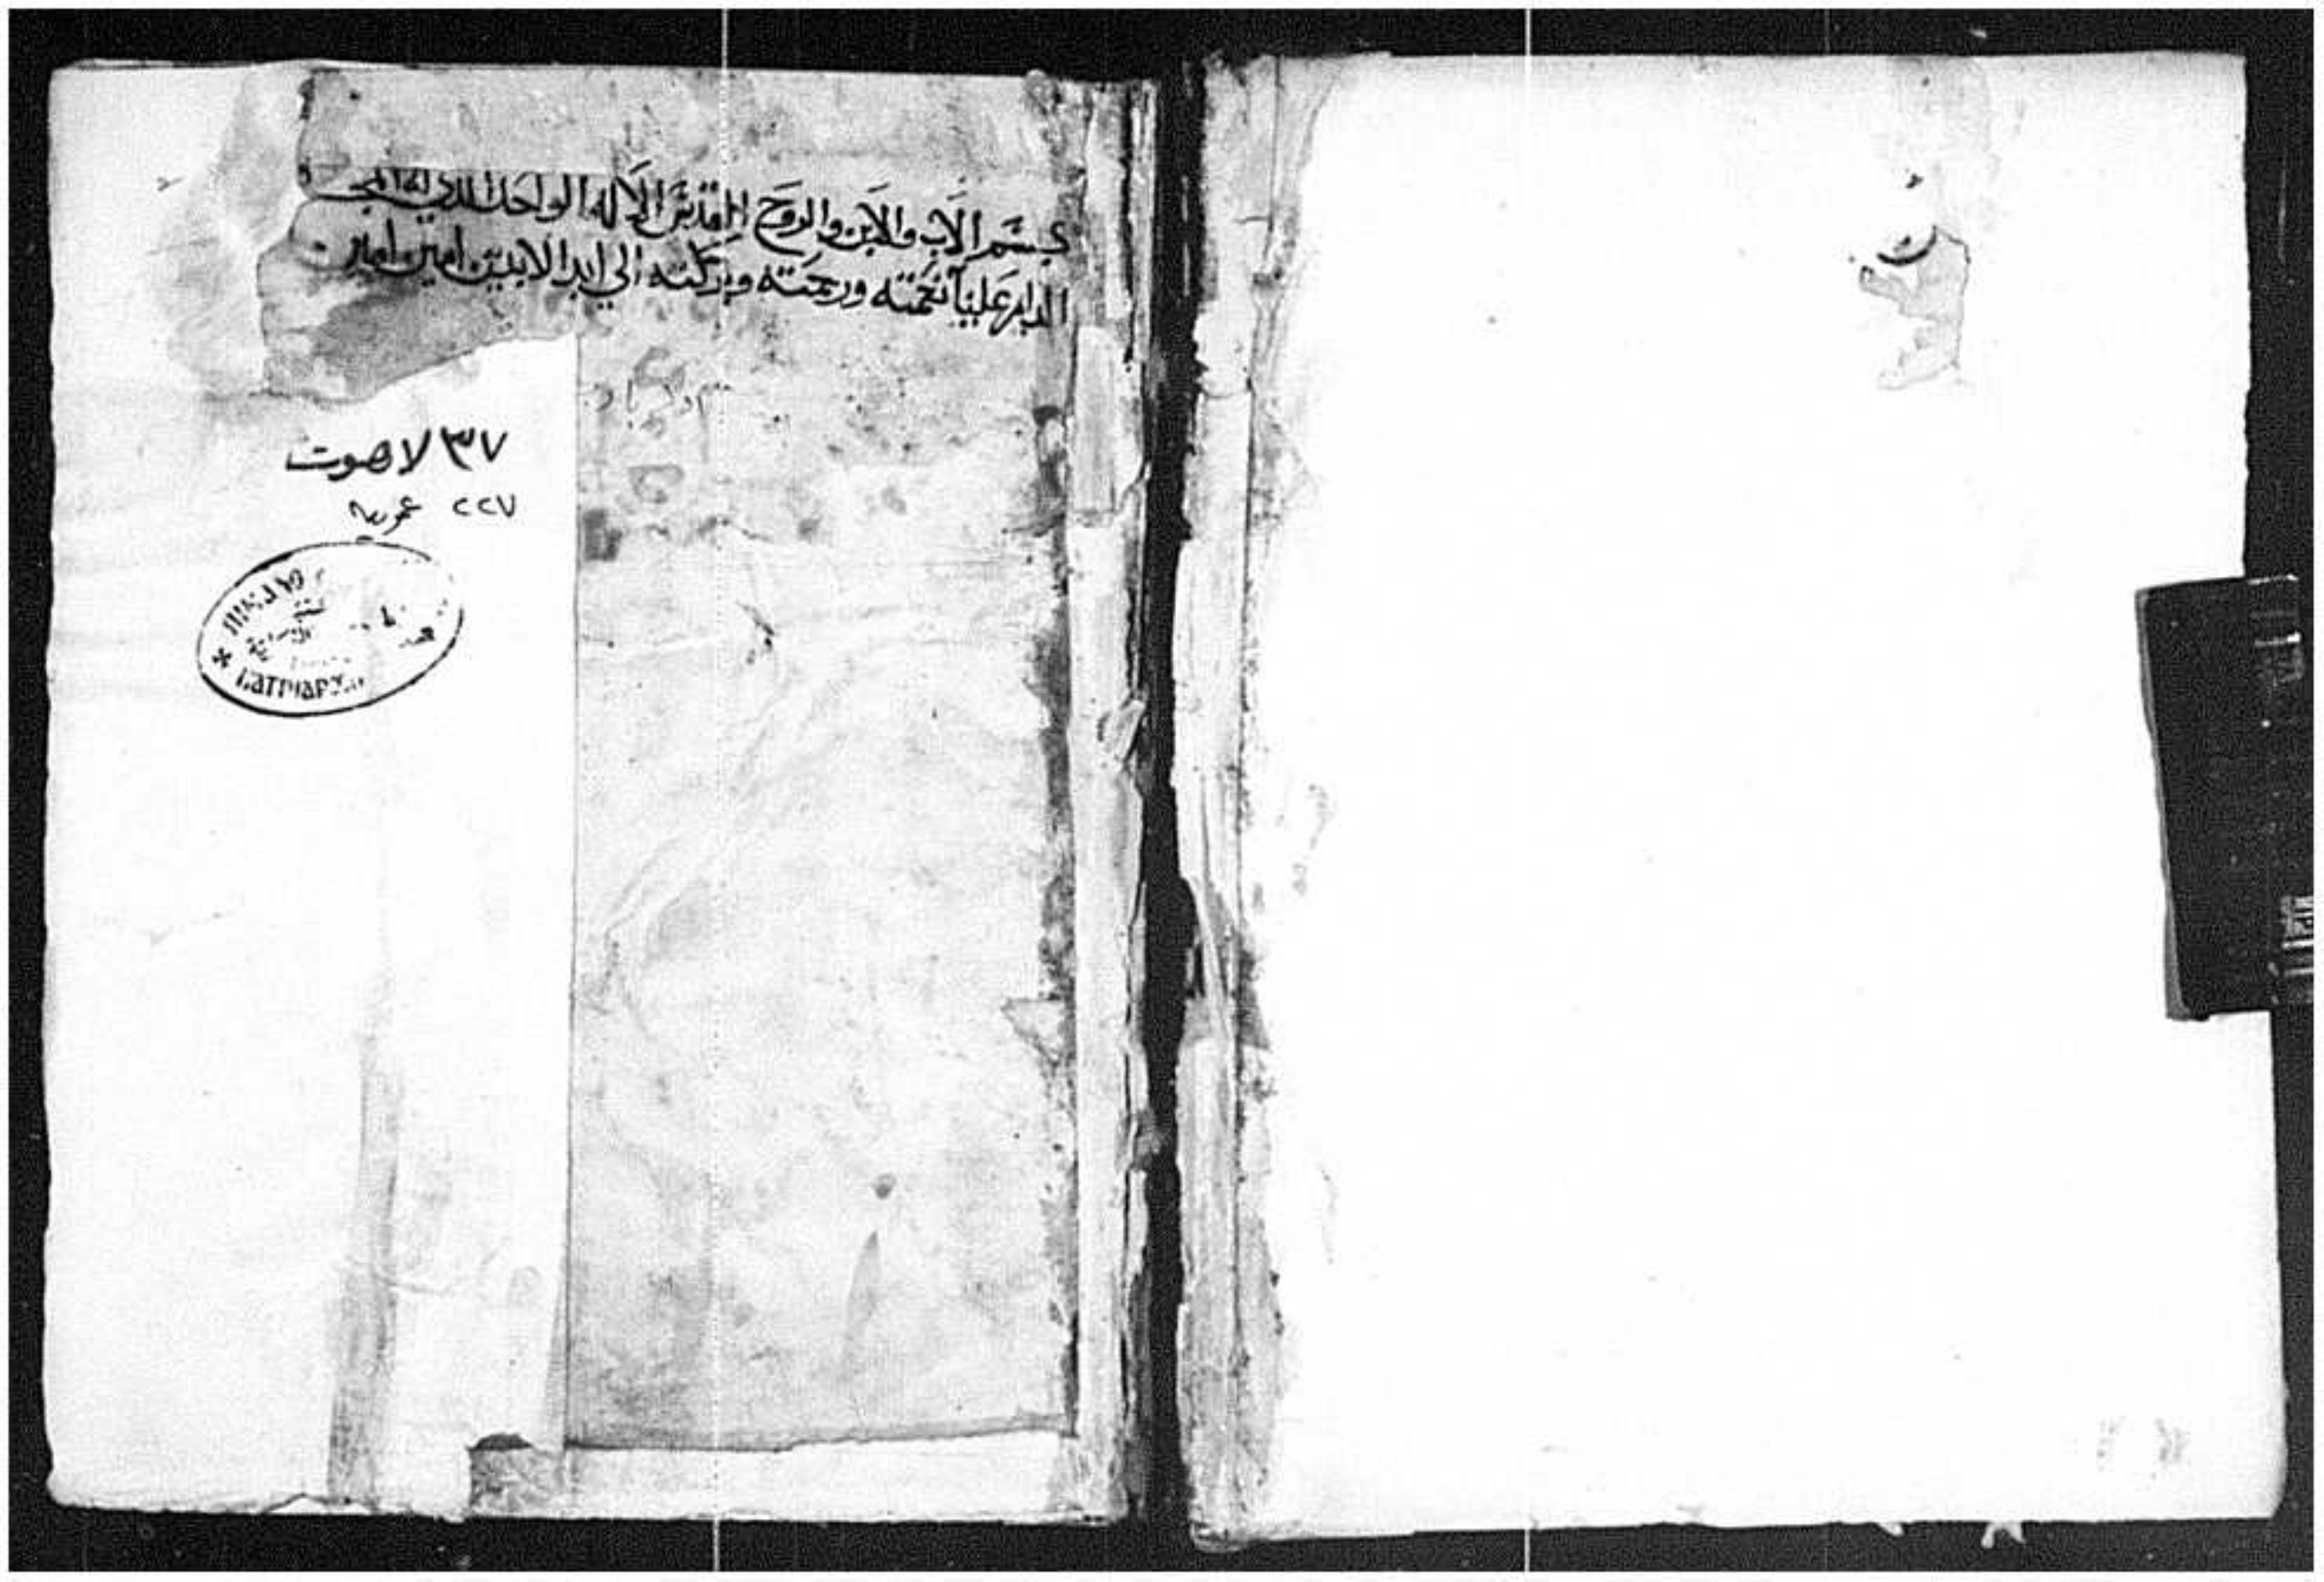 بسم الاب والابن والروح القدس الاله الواحد الذي له المجد
الدايم علينا نعمته ورحمته وبركته الي ابد الابدين امين امين
٣٧ لاهوت
٢٢٧ عربية